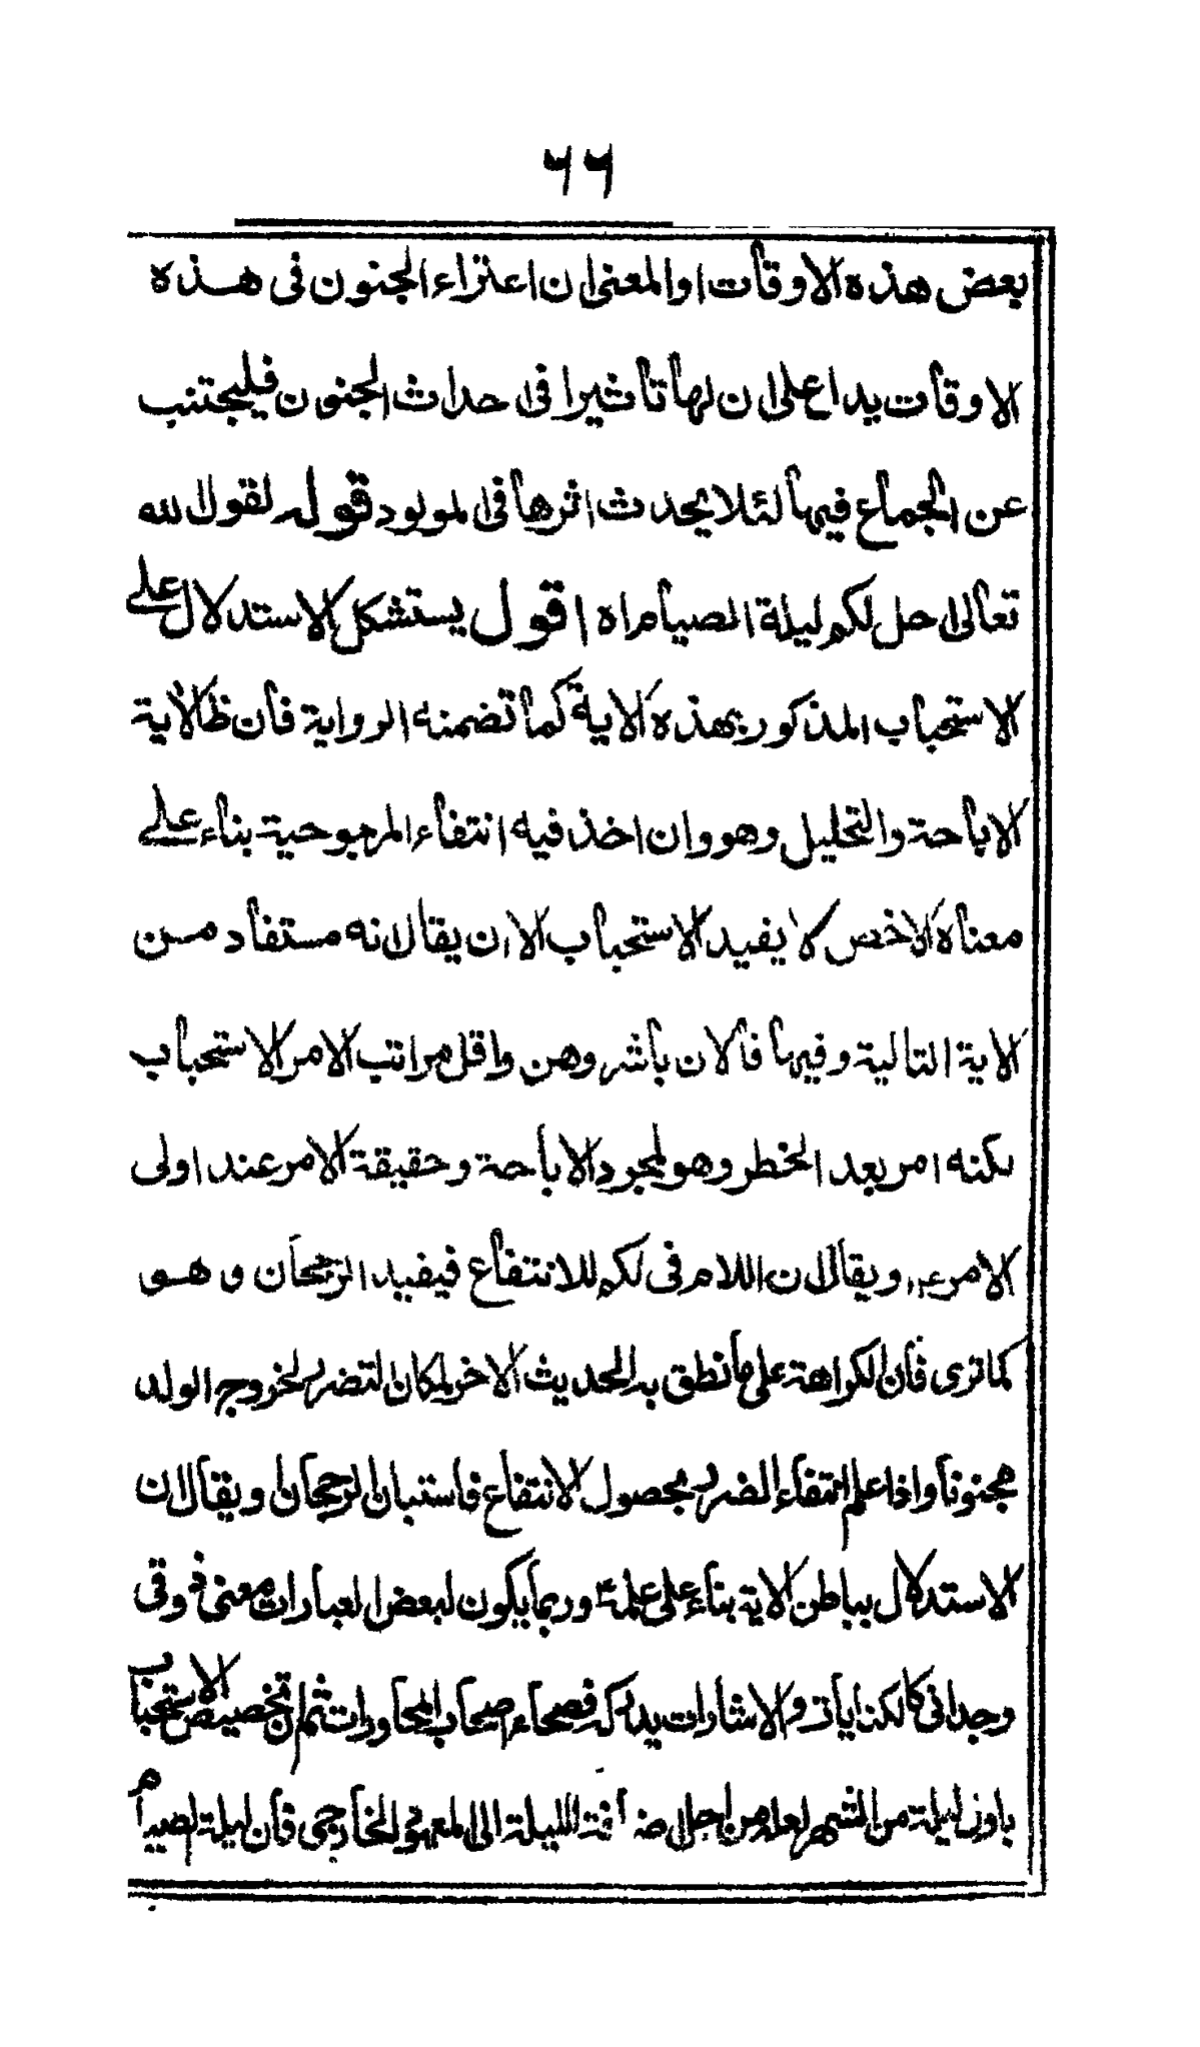 ٦٦
بعض هذه الاوقات او المعنى ان اعتراء الجنون فى هذه
الاوقات يدل على ان لها تاثيرا فى احداث الجنون فليجتنب
عن الجماع فيها لئلا يحدث اثرها فى المولود قوله لقول الله
تعالى احل لكم ليلة الصيام اه اقول يستشكل الاستدلال على
الاستحباب المذكور بهذه الاية كما تضمنه الرواية فان ظ الاية
الاباحة والتحليل وهو وان اخذ فيه انتفاء المرجوحية بناء على
معناه الاخص لا يفيد الاستحباب الا ان يقال انه مستفاد من
الاية التالية وفيها فالان باشروهن واقل مراتب الامر الاستحباب
لكنه امر بعد الخطر وهو لمجرد الاباحة وحقيقة الامر عند اولى
الامر ويقال ان اللام فى لكم للانتفاع فيفيد الرجحان وهو
كما ترى فان الكراهة على ما نطق به الحديث الاخر لمكان التضرر لخروج الولد
مجنونا واذا علم انتفاء الضرر بحصول الانتفاع فاستبان الرجحان ويقال ان
الاستدلال بباطن الاية بناء على علمه وربما يكون لبعض العبارات معنى ذوقى
وجدانى كالكنايات والاشارات يدركه فصحاء اصحاب المحاورات ثم ان تخصيص الاستحباب
باول ليلة من الشهر لعله من اجل اضافة الليلة الى المعهود الخارجى فان ليلة الصيام